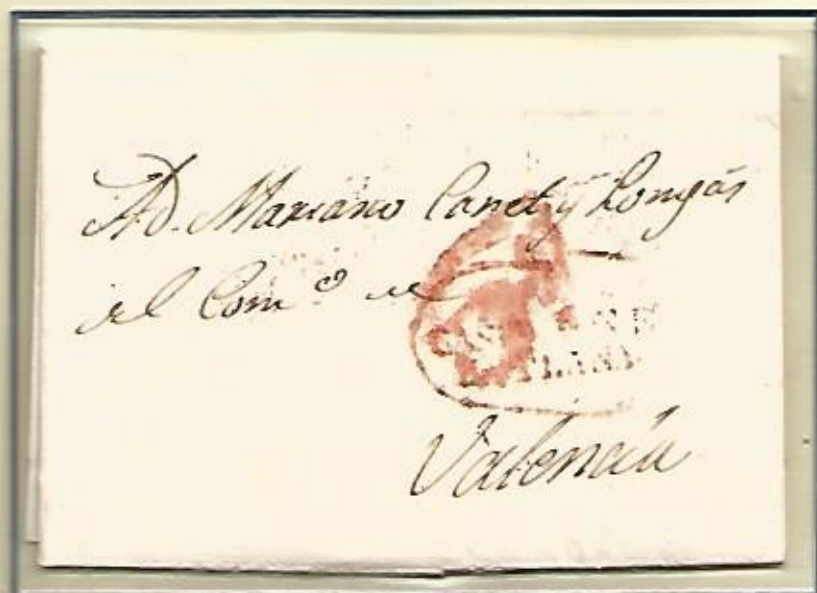 A D. Mariano Canet y Longás
del Com.º de
Valencia